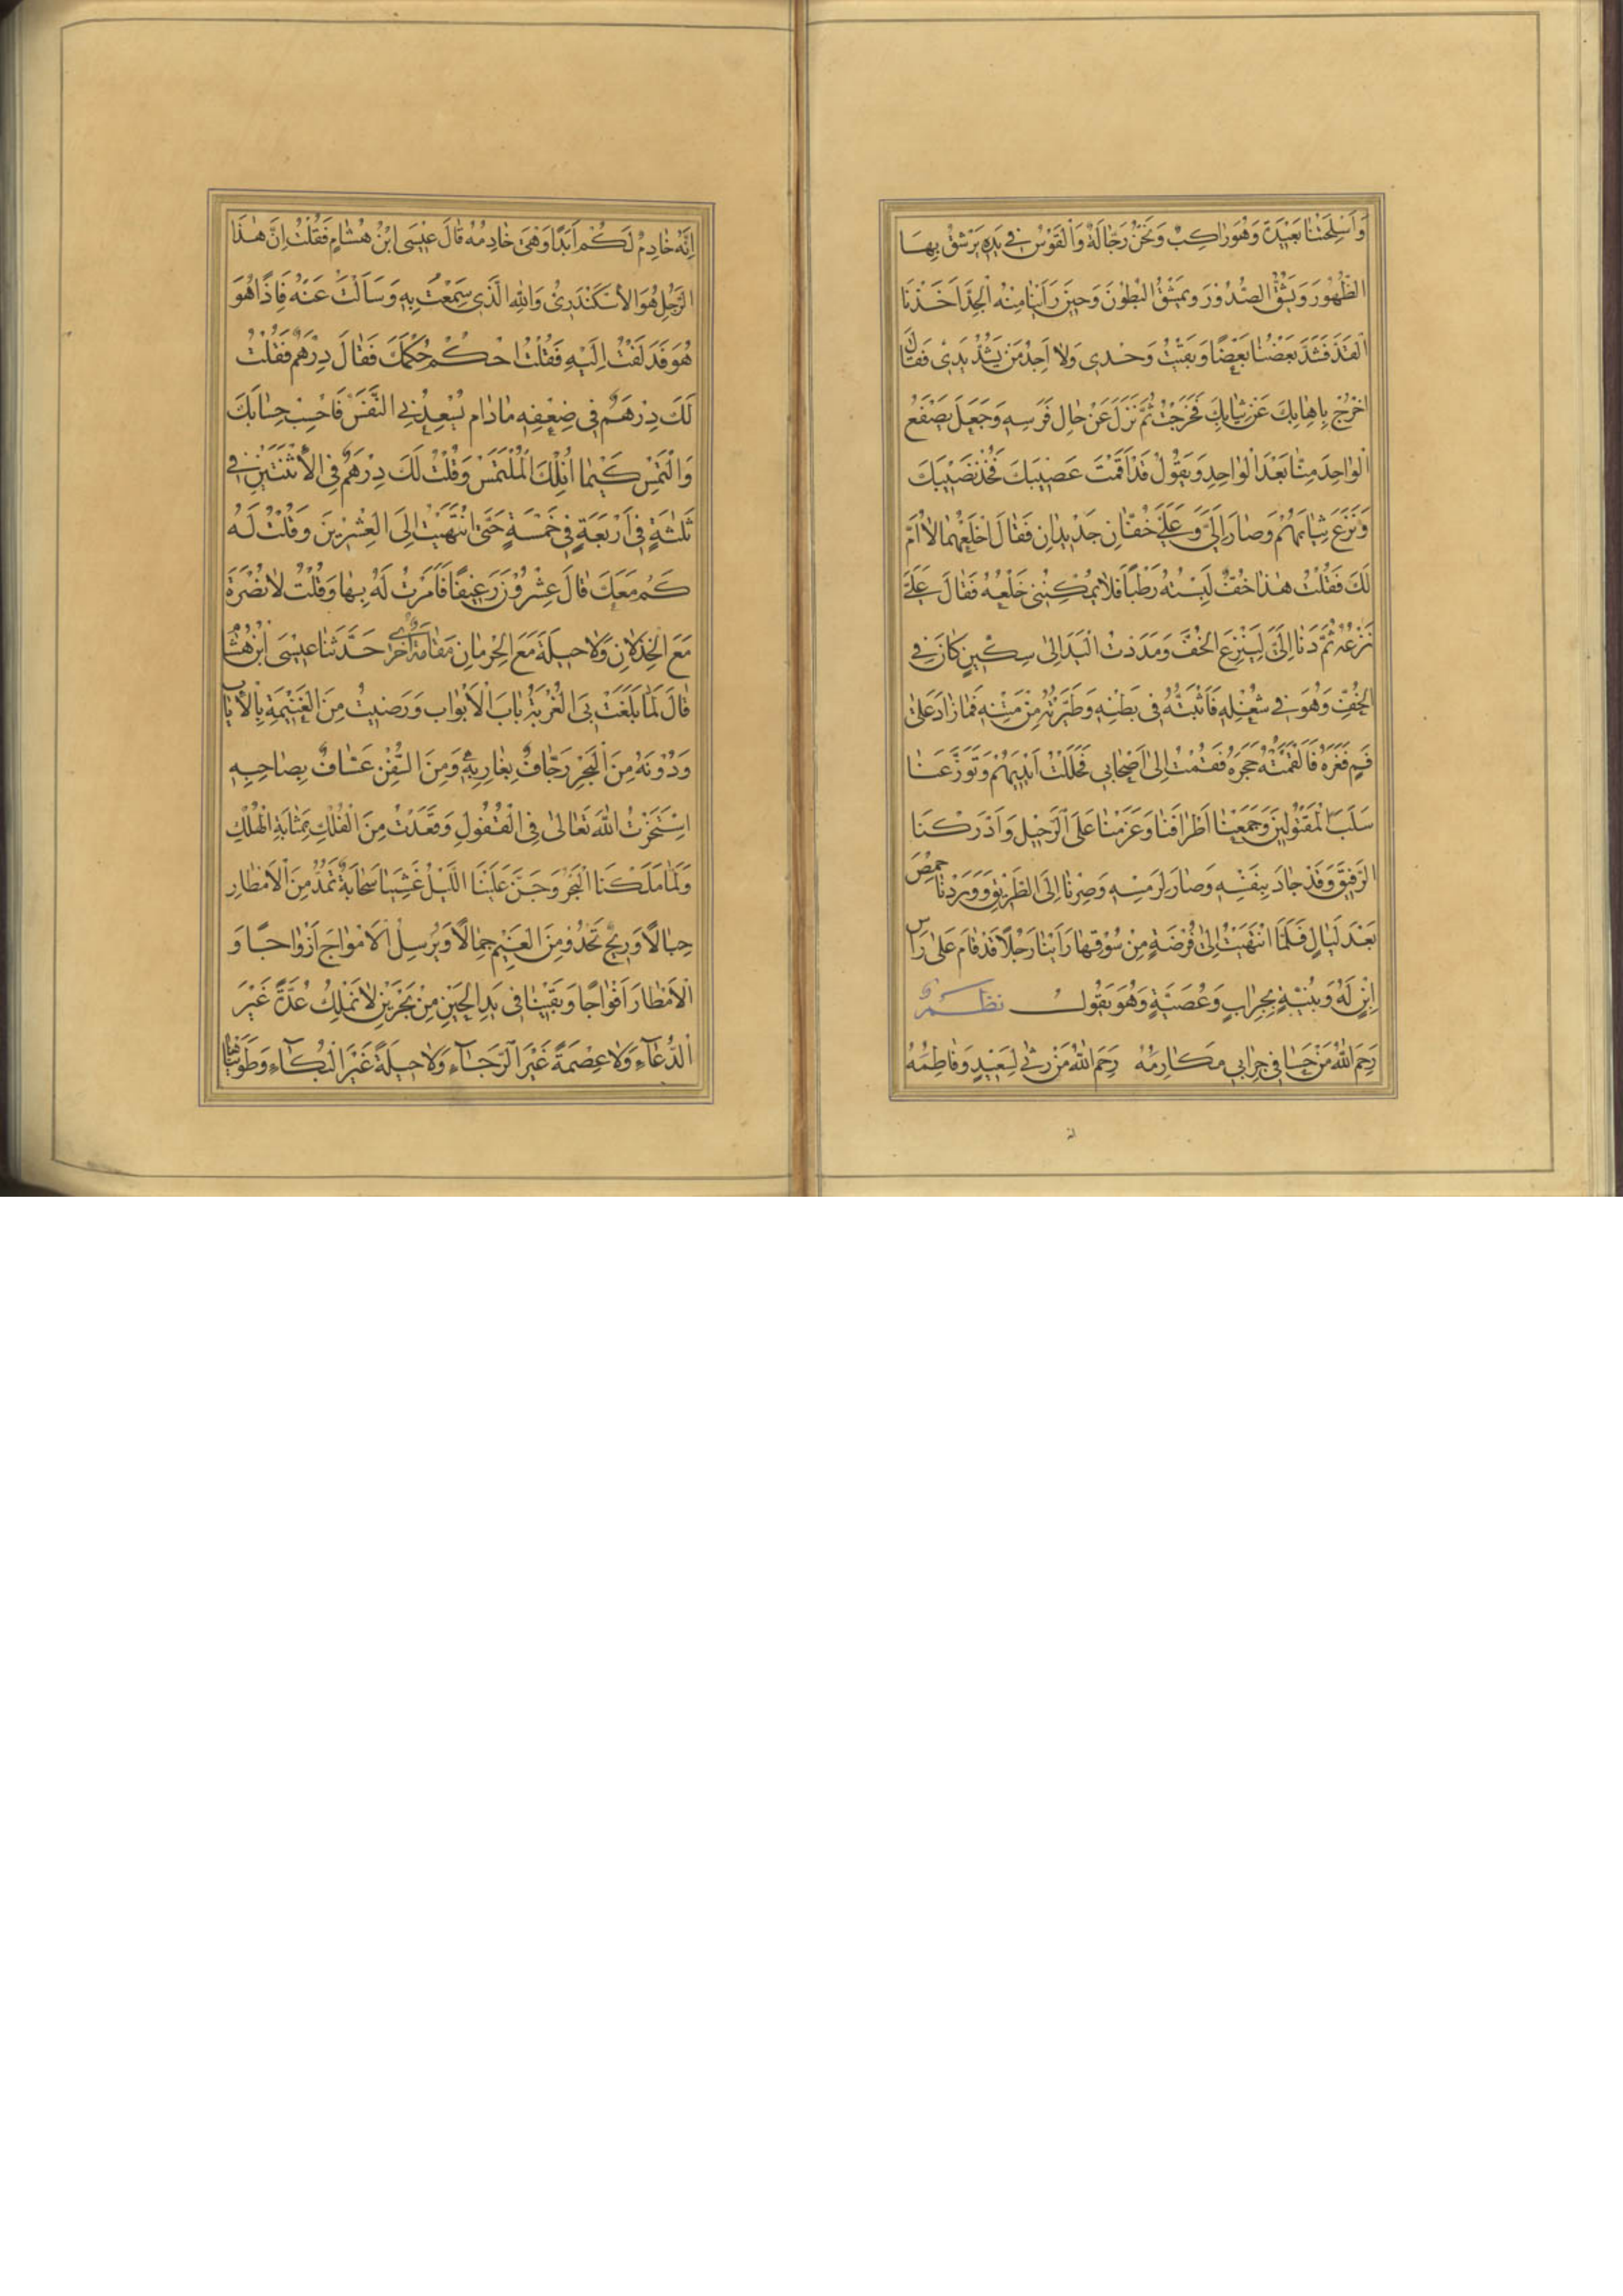 وَاَسْلِحَتُنَا بَعِيْدَةٌ وَهُوَ رَاكِبٌ وَنَحْنُ رَجَّالَةٌ وَالْقَوْسُ فِي يَدِهِ يَرْشُقُ بِهَا
الظُّهُورَ وَيَشُقُّ الصُّدُوْرَ وَيَمْشُقُ البُطُوْنَ وَحِيْنَ رَاَيْنَا مِنْهُ الْجِدَّ اَخَذْنَا
الْقِدَّ فَشَدَّ بَعْضُنَا بَعْضًا وَبَقِيْتُ وَحْدِى وَلَا اَجِدُ مَنْ يَشُدُّ يَدِىْ فَقَالَ
اخْرُجْ بِاِهَابِكَ عَنْ ثِيَابِكَ فَخَرَجْتُ ثُمَّ نَزَلَ عَنْ حَالِ فَرَسِهِ وَجَعَلَ يَصْفَعُ
الْوَاحِدَ مِنَّا بَعْدَ الْوَاحِدِ وَيَقُوْلُ قَدْ اَقَمْتَ عَصِيْبَكَ فَخُذْ نَصِيْبَكَ
وَنَزَعَ ثِيَابَهُمْ وَصَارَ اِلَىَّ وَعَلَىَّ خُفَّانِ جَدِيْدَانِ فَقَالَ اخْلَعْهُمَا لَا اُمَّ
لَكَ فَقُلْتُ هٰذَا خُفٌّ لَبِسْتُهُ رَطْبًا فَلَا يُمْكِنُنِى خَلْعُهُ فَقَالَ عَلَىَّ
نَزْعُهُ ثُمَّ دَنَا اِلَىَّ لِيَنْزِعَ الخُفَّ وَمَدَدْتُ الْيَدَ اِلىٰ سِكِّيْنٍ كَانَ فِى
الخُفِّ وَهُوَ فِى شُغْلِهِ فَاَثْبَتُّهُ فِى بَطْنِهِ وَطَيَّرْتُهُ مِنْ مَتْنِهِ فَمَا زَادَ عَلىٰ
فَمٍ فَغَرَهُ فَاَلْقَمْتُهُ حَجَرَهُ فَقُمْتُ اِلىٰ اَصْحَابِى فَحَلَلْتُ اَيْدِيَهُمْ وَتَوَزَّعْنَا
سَلَبَ الْمَقْتُوْلِيْنَ وَجَمَعْنَا اَطْرَافَنَا وَعَزَمْنَا عَلَى الرَّحِيْلِ وَاَدْرَكْنَا
الرَّفِيْقَ وَقَدْ جَادَ بِنَفْسِهِ وَصَارَ لِرَمْسِهِ وَصِرْنَا اِلَى الطَّرِيْقِ وَوَرَدْنَا حِمْصَ
بَعْدَ لَيَالٍ فَلَمَّا انْتَهَيْتُ اِلىٰ فُرْضَةٍ مِنْ سُوْقِهَا رَاَيْنَا رَجُلًا قَدْ قَامَ عَلىٰ رَاْسِ
ابْنٍ لَهُ وَبُنَيَّةٍ بِجِرَابٍ وَعُصَيَّةٍ وَهُوَ يَقُوْلُ نظم
رَحِمَ اللّٰهُ مَنْ حَشَا فِى جِرَابِى مَكَارِمَهْ رَحِمَ اللّٰهُ مَنْ رَثٰى لِسَعِيْدٍ وَفَاطِمَهْ
اِنَّهُ خَادِمٌ لَكُمْ اَبَدًا وَهْىَ خَادِمَهْ قَالَ عِيْسَى ابْنُ هِشَامٍ فَقُلْتُ اِنَّ هٰذَا
الرَّجُلَ هُوَ الْاِسْكَنْدَرِىُّ وَاللّٰهِ الَّذِى سَمِعْتُ بِهِ وَسَاَلْتُ عَنْهُ فَاِذًا هُوَ
هُوَ فَدَلَفْتُ اِلَيْهِ فَقُلْتُ احْكُمْ حُكْمَكَ فَقَالَ دِرْهَمٌ فَقُلْتُ
لَكَ دِرْهَمٌ فِى ضِعْفِهِ مَا دَام يُسْعِدُنِى النَّفَسْ فَاحْسِبْ حِسَابَكَ
وَالْتَمِسْ كَيْمَا اُنِلْكَ الْمُلْتَمَسْ وَقُلْتُ لَكَ دِرْهَمٌ فِى الْاِثْنَتَيْنِ فِى
ثَلٰثَةٍ فِى اَرْبَعَةٍ فِى خَمْسَةٍ حَتَّى انْتَهَيْتُ اِلَى الْعِشْرِيْنَ وَقُلْتُ لَهُ
كَمْ مَعَكَ قَالَ عِشْرُوْنَ رَغِيْفًا فَاَمَرْتُ لَهُ بِهَا وَقُلْتُ لَا نُصْرَةَ
مَعَ الْخِذْلَانِ وَلَا حِيْلَةَ مَعَ الْحِرْمَانِ مَقَامَةٌ اُخْرٰى حَدَّثَنَا عِيْسَى ابْنُ هِشَام
قَالَ لَمَّا بَلَغَتْ بِىَ الْغُرْبَةُ بَابَ الْاَبْوَابِ وَرَضِيْتُ مِنَ الْغَنِيْمَةِ بِالْاِيَابِ
وَدُوْنَهُ مِنَ الْبَحْرِ رَجَّافٌ بِغَارِبِهِ وَمِنَ السُّفُنِ عَسَّافٌ بِصَاحِبِهِ
اسْتَخَرْتُ اللّٰهَ تَعَالىٰ فِى الْقُفُولِ وَقَعَدْتُ مِنَ الْفُلْكِ بِمَثَابَةِ الْهُلْكِ
وَلَمَّا مَلَكْنَا الْبَحْرَ وَجَنَّ عَلَيْنَا اللَّيْلُ غَشِيَتْنَا سَحَابَةٌ تَمُدُّ مِنَ الْاَمْطَارِ
حِبَالًا وَرِيْحٌ تَحْدُوْ مِنَ الْغَيْمِ جِبَالًا وَيُرْسِلُ الْاَمْوَاجَ اَزْوَاجًا وَ
الْاَمْطَارَ اَفْوَاجًا وَبَقِيْنَا فِى يَدِ الْحَيْنِ مِنْ بَحْرَيْنِ لَا نَمْلِكُ عُدَّةً غَيْرَ
الدُّعَآءِ وَلَا عِصْمَةً غَيْرَ الرَّجَآءِ وَلَا حِيْلَةً غَيْرَ الْبُكَآءِ وَطَوَيْنَاهَا